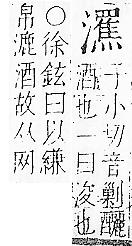 子小切音剿釃
酒也一曰浚也
○徐鉉曰以縑
帛漉酒故从网